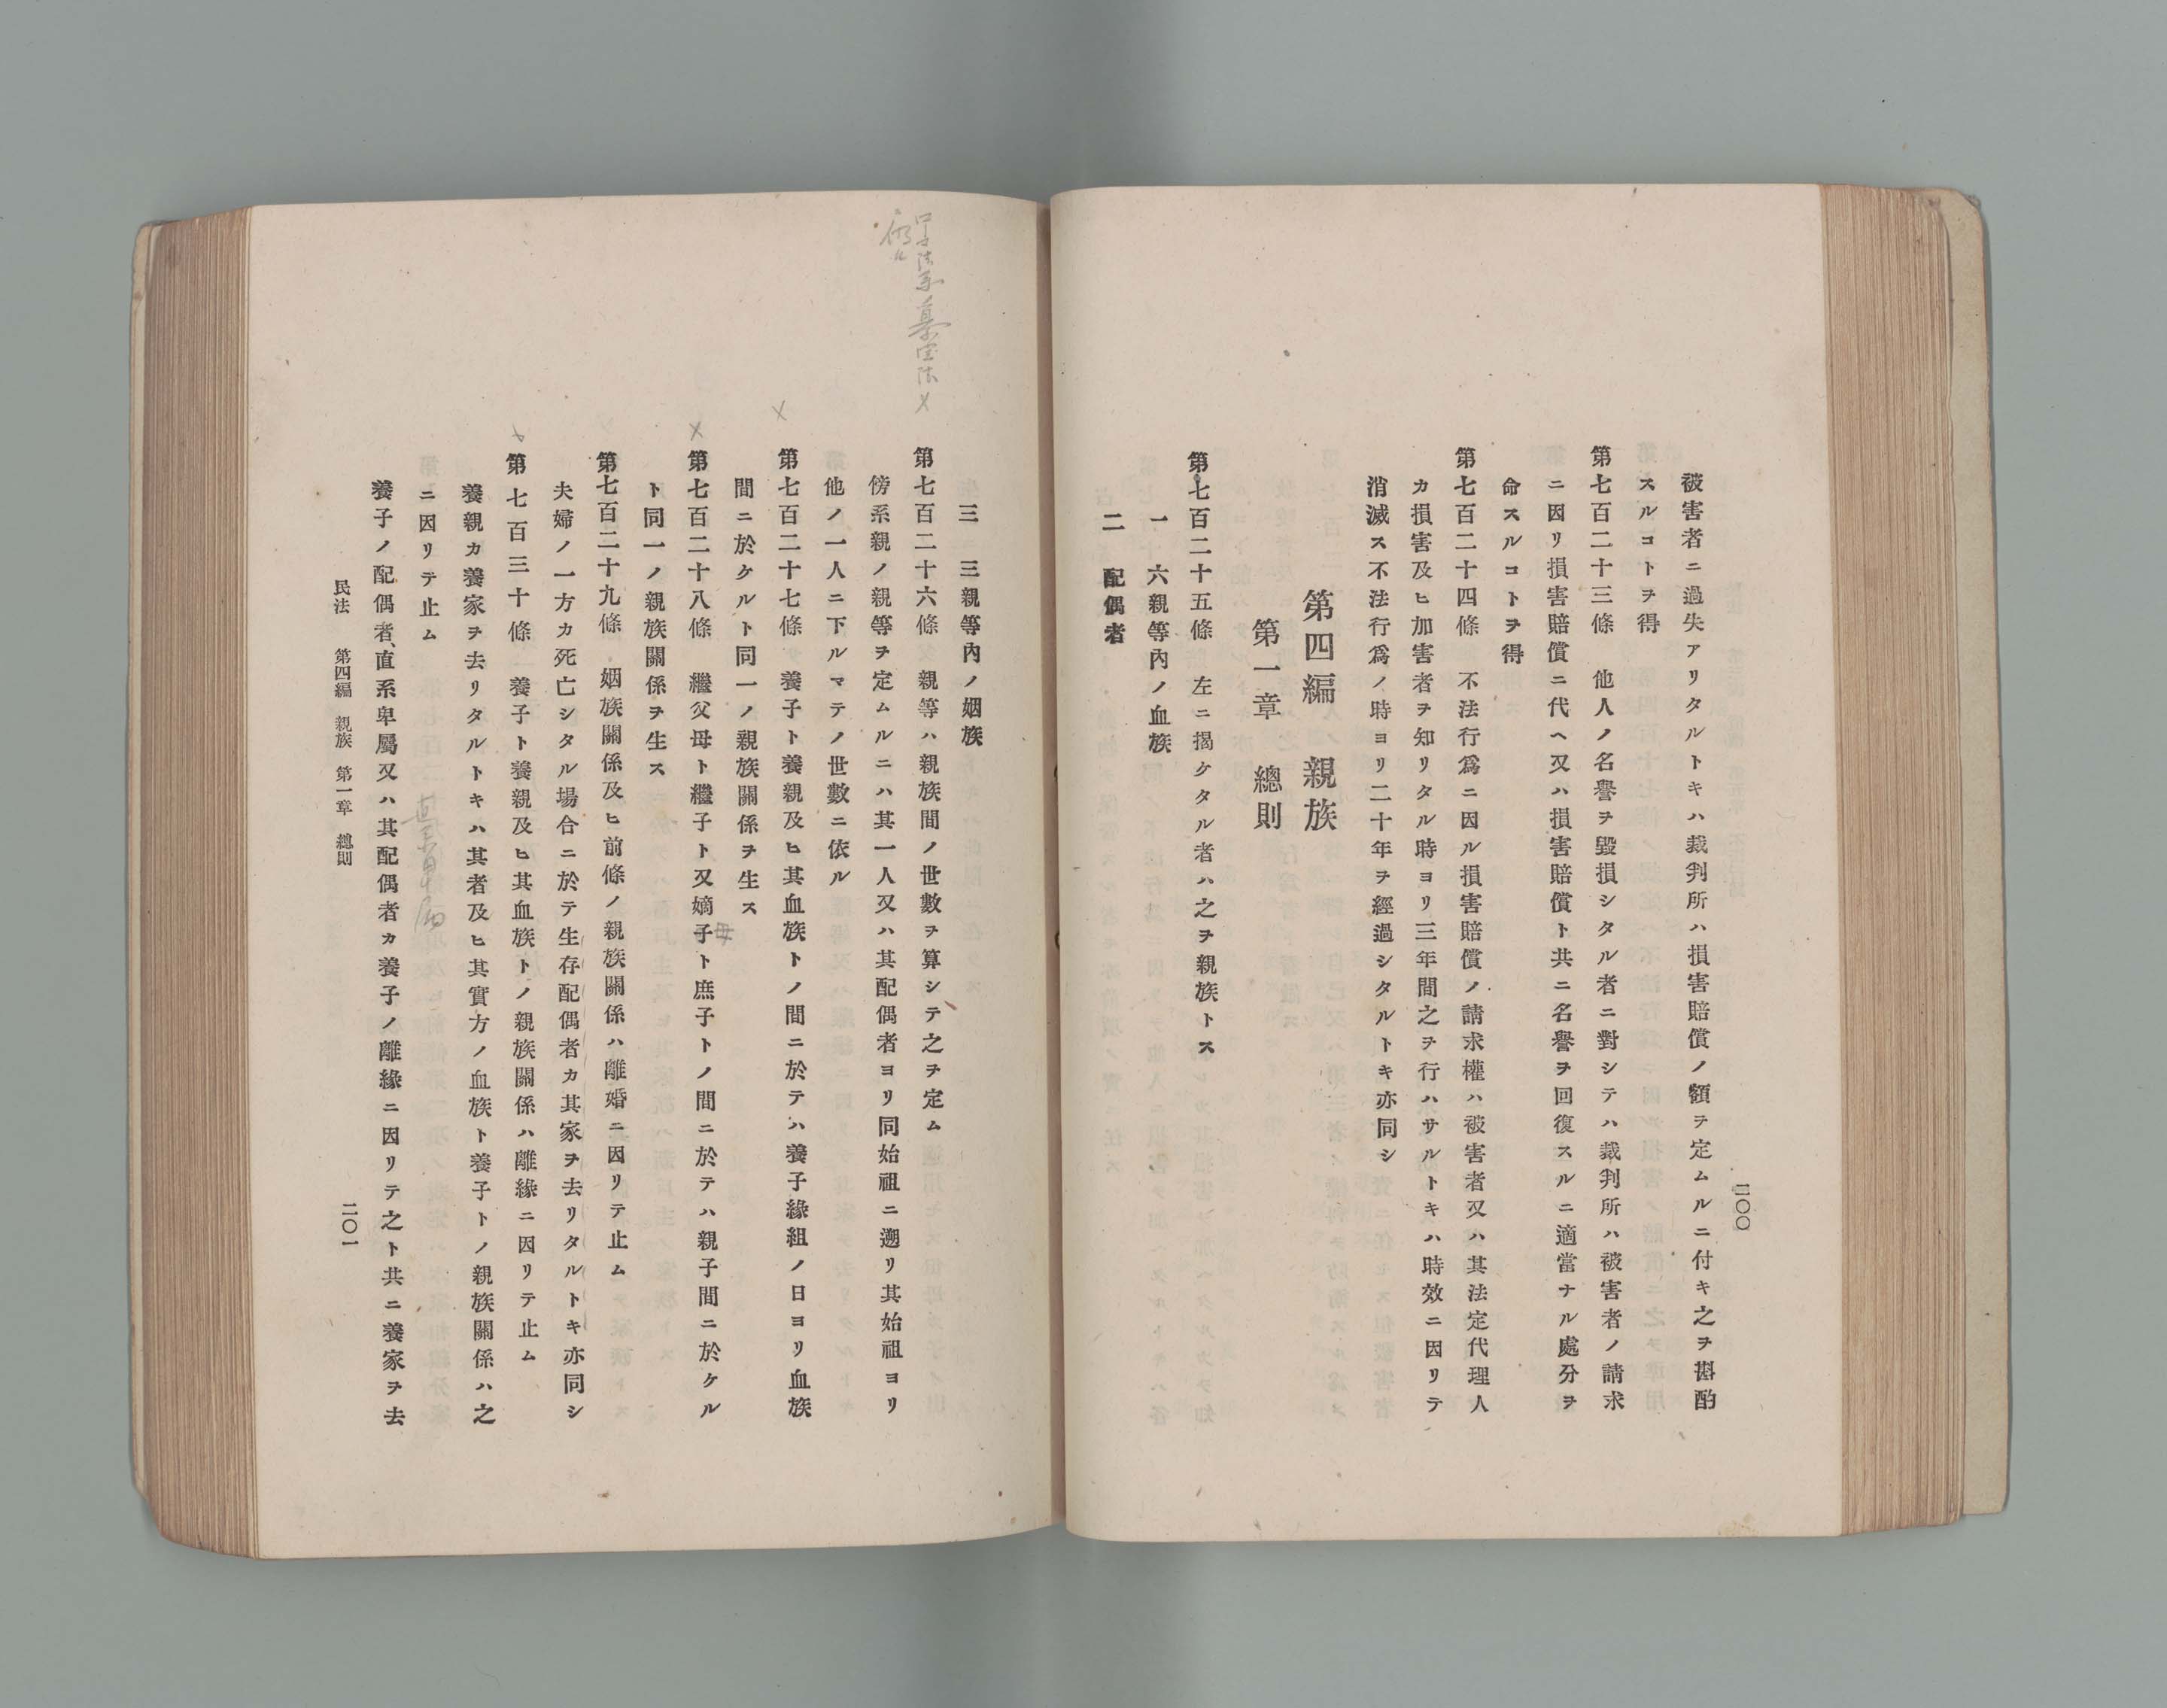 被害者ニ過失アリタルトキハ裁判所ハ損害賠償ノ額ヲ定ムルニ付キ之ヲ斟酌
スルコトヲ得
第七百二十三條 他人ノ名譽ヲ毀損シタル者ニ對シテハ裁判所ハ被害者ノ請求
ニ因リ損害賠償ニ代ヘ又ハ損害賠償ト共ニ名譽ヲ回復スルニ適當ナル處分ヲ
命スルコトヲ得
第七百二十四條 不法行爲ニ因ル損害賠償ノ請求權ハ被害者又ハ其法定代理人
カ損害及ヒ加害者ヲ知リタル時ヨリ三年間之ヲ行ハサルトキハ時效ニ因リテ
消滅ス不法行爲ノ時ヨリ二十年ヲ經過シタルトキ亦同シ
第四編 親族
第一章 總則
第七百二十五條 左ニ揭ケタル者ハ之ヲ親族トス
一 六親等內ノ血族
二 配偶者
二〇〇
三 三親等內ノ姻族
第七百二十六條 親等ハ親族間ノ世數ヲ算シテ之ヲ定ム
傍系親ノ親等ヲ定ムルニハ其一人又ハ其配偶者ヨリ同始祖ニ遡リ其始祖ヨリ
他ノ一人ニ下ルマテノ世數ニ依ル
第七百二十七條 養子ト養親及ヒ其血族トノ間ニ於テハ養子緣組ノ日ヨリ血族
間ニ於ケルト同一ノ親族關係ヲ生ス
第七百二十八條 繼父母ト繼子ト又嫡子ト庶子トノ間ニ於テハ親子間ニ於ケル
母
ト同一ノ親族關係ヲ生ス
第七百二十九條 姻族關係及ヒ前條ノ親族關係ハ離婚ニ因リテ止ム
夫婦ノ一方カ死亡シタル場合ニ於テ生存配偶者カ其家ヲ去リタルトキ亦同シ
第七百三十條 養子ト養親及ヒ其血族トノ親族關係ハ離緣ニ因リテ止ム
養親カ養家ヲ去リタルトキハ其者及ヒ其實方ノ血族ト養子トノ親族關係ハ之
ニ因リテ止ム
養子ノ配偶者、直系卑屬又ハ其配偶者カ養子ノ離緣ニ因リテ之ト共ニ養家ヲ去
民法 第四編 親族 第一章 總則
二〇一